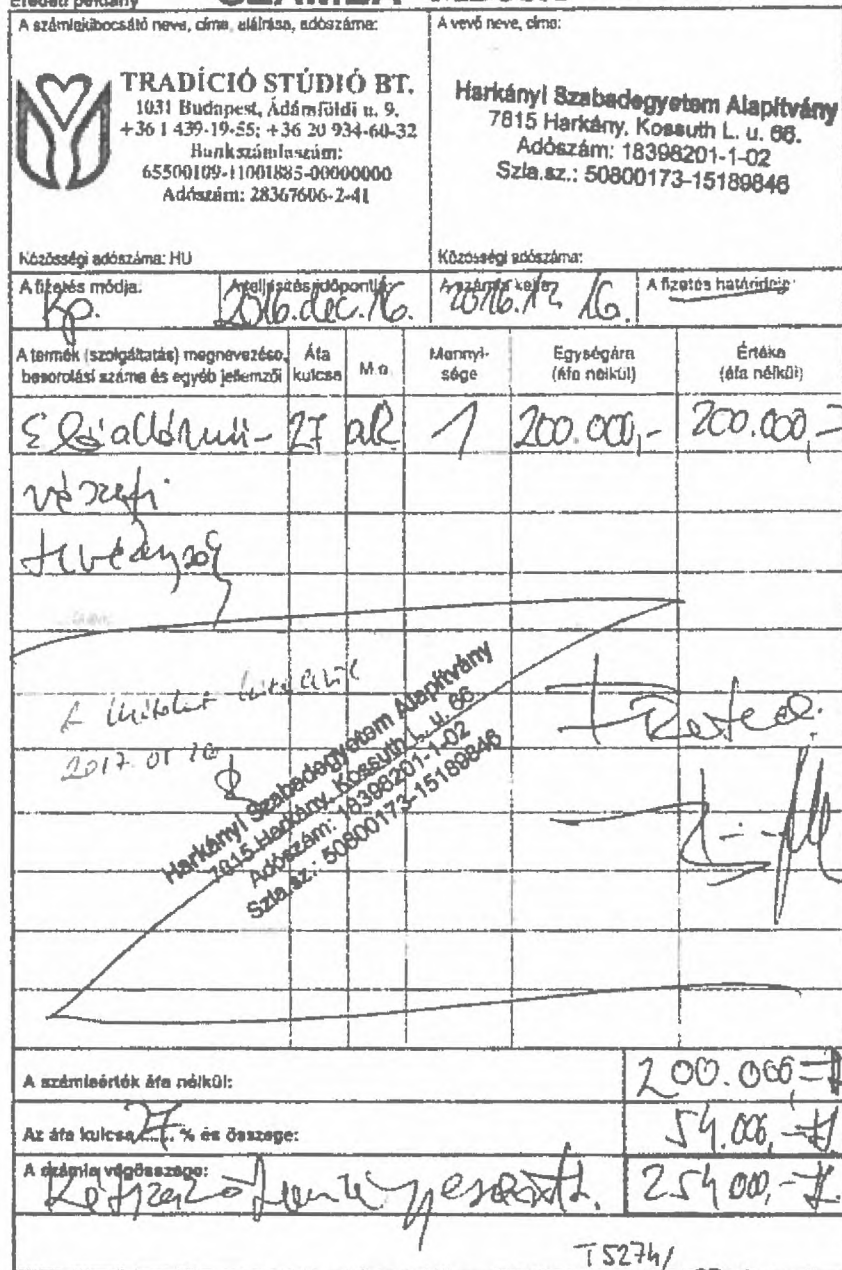 Eredeti példány
A számlakibocsátó neve, címe, aláírása, adószáma:
TRADÍCIÓ STÚDIÓ BT.
1031 Budapest, Ádámföldi u. 9.
+36 1 439-19-55; +36 20 934-60-32
Bankszámlaszám:
65500109-11001885-00000000
Adószám: 28367606-2-41
Közösségi adószáma: HU
A vevő neve, címe:
Harkányi Szabadegyetem Alapítvány
7815 Harkány, Kossuth L. u. 66.
Adószám: 18398201-1-02
Szla.sz.: 50800173-15189846
Közösségi adószáma:
A fizetés módja:
Kp.
A teljesítés időpontja:
2016.dec.16.
A számla kelte:
2016.12 16.
A fizetés határideje:
A termék (szolgáltatás) megnevezése, besorolási száma és egyéb jellemzői
Áfa kulcsa
M.e.
Mennyi-
sége
Egységára
(áfa nélkül)
Értéke
(áfa nélkül)
Előadómű- 27 alk 1 200.000,- 200.000,-
vészeti
tevékenység
2017. 01 10
Harkányi Szabadegyetem Alapítvány
7815 Harkány, Kossuth L. u. 66.
Adószám: 18398201-1-02
Szla.sz.: 50800173-15189846
Fizetve.
A számlaérték áfa nélkül:
200.000,-
Az áfa kulcsa 27 % és összege:
54.000,-
A számla végösszege:
254 000,-
T 5274/